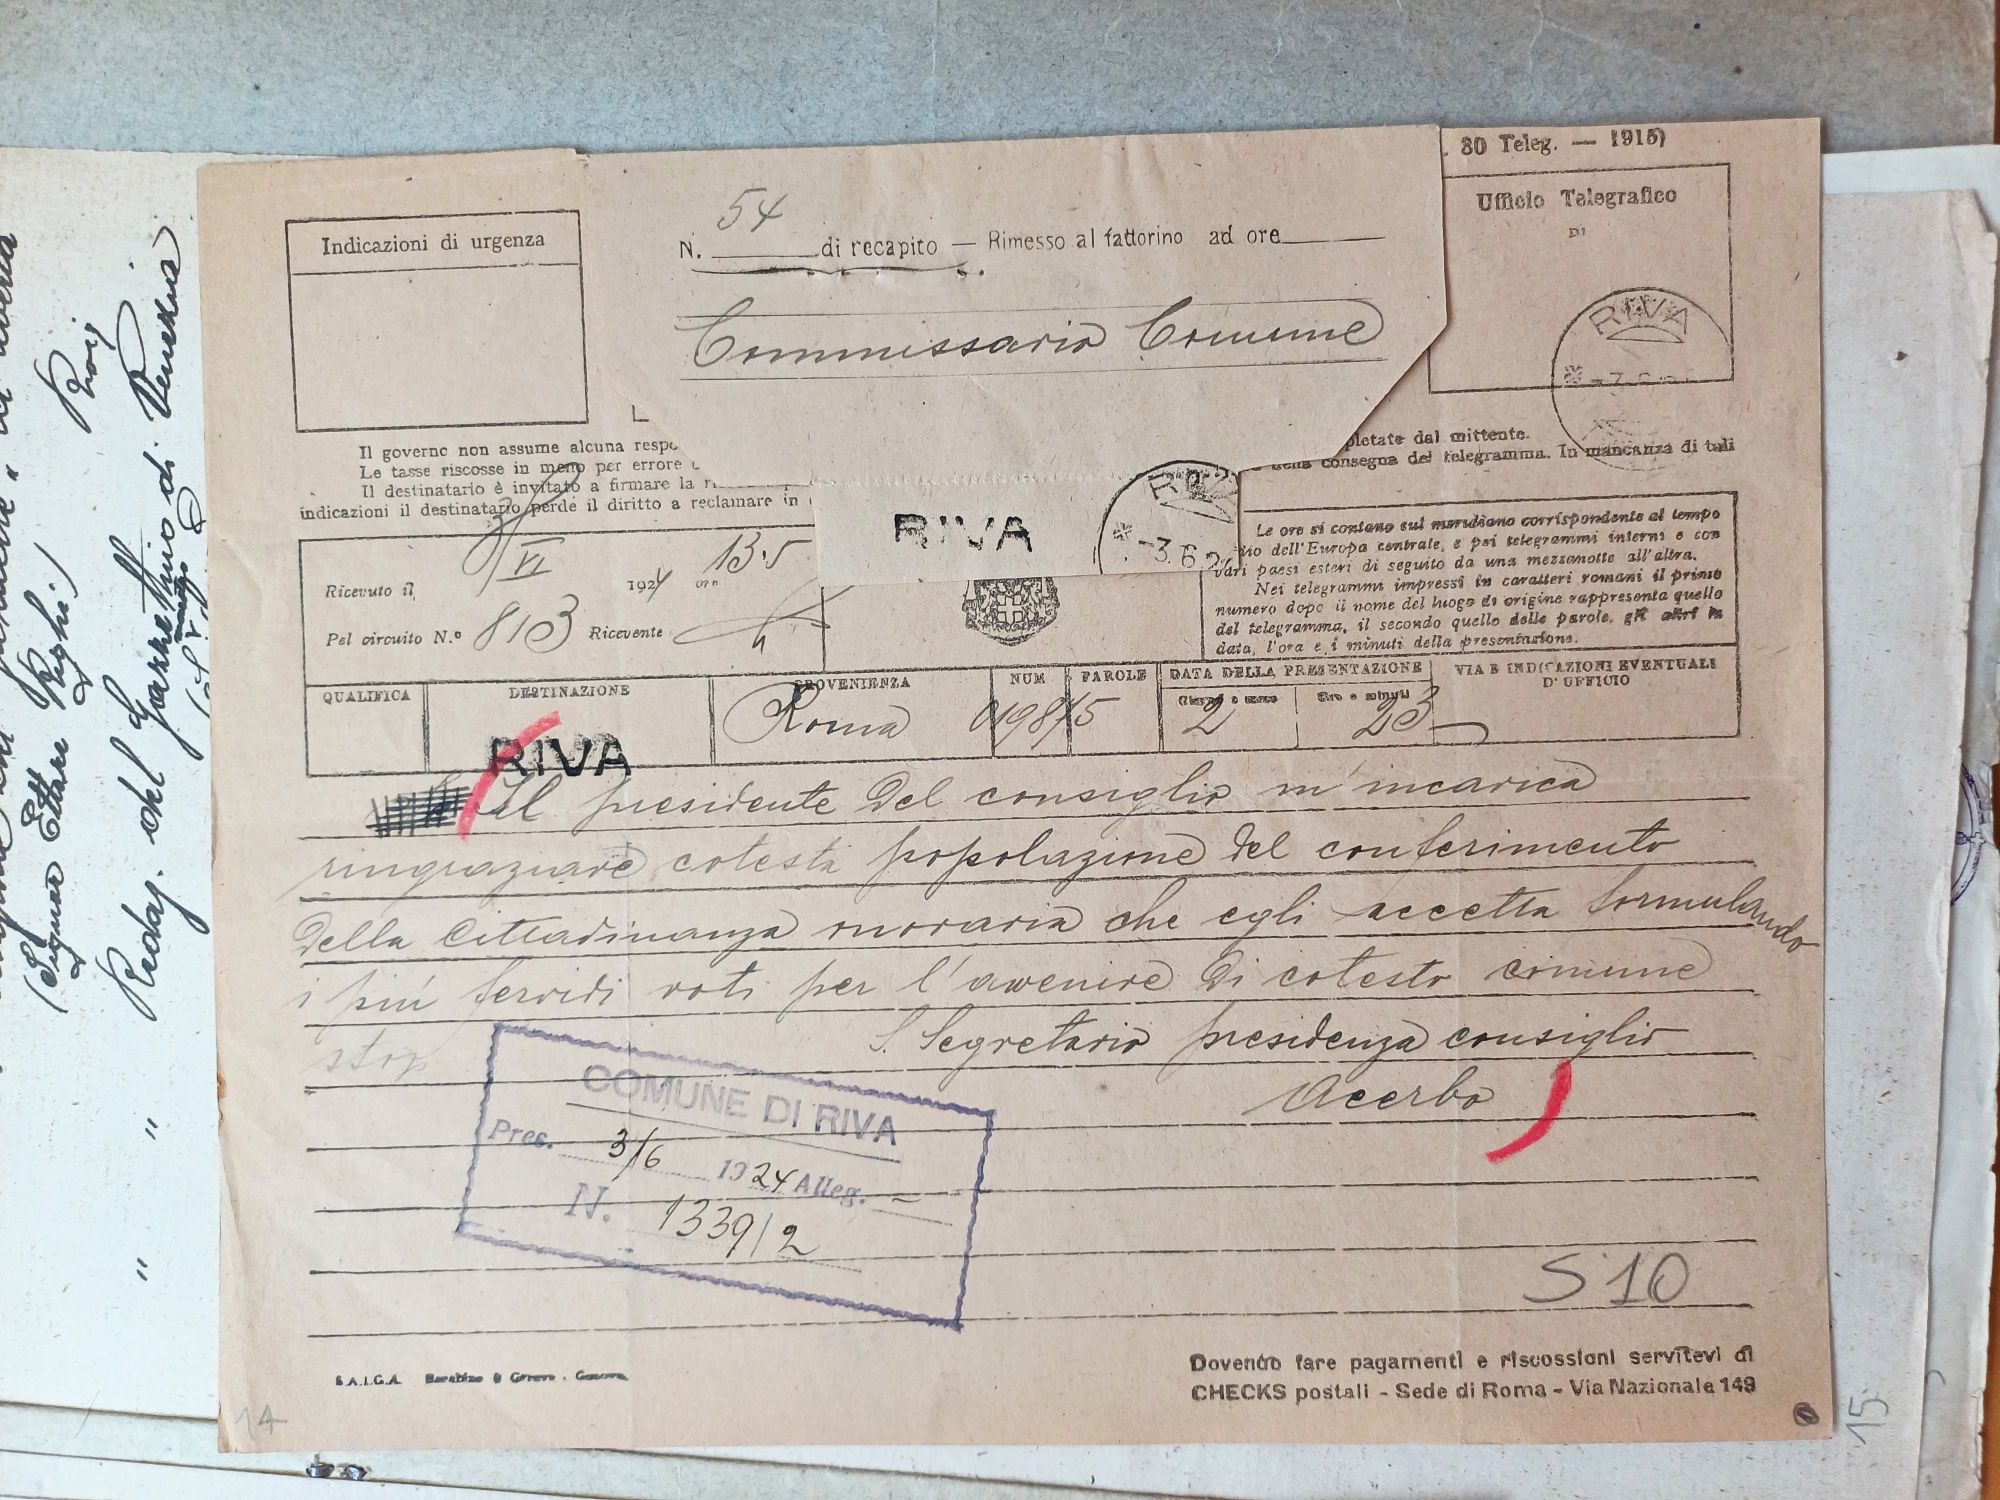 . 80 Teleg. — 1915)
Indicazioni di urgenza
54
N. di recapito — Rimesso al fattorino ad ore
Commissario Comune
Ufficio Telegrafico
DI
RIVA
Il governo non assume alcuna respo
Le tasse riscosse in meno per errore
Il destinatario è invitato a firmare la
indicazioni il destinatario perde il diritto a reclamare in
pletate dal mittente.
della consegna del telegramma. In mancanza di tali
RIVA
-3.6.2
Le ore si contano sul meridiano corrispondente al tempo
dio dell'Europa centrale, e pei telegrammi interni e con
vari paesi esteri di seguito da una mezzanotte all'altra.
Nei telegrammi impressi in caratteri romani il primo
numero dopo il nome del luogo di origine rappresenta quello
del telegramma, il secondo quello delle parole, gli altri la
data, l'ora e i minuti della presentazione.
Ricevuto il 3/VI 1924 ore 13.5
Pel circuito N.º 813 Ricevente
QUALIFICA DESTINAZIONE PROVENIENZA NUM PAROLE DATA DELLA PRESENTAZIONE VIA E INDICAZIONI EVENTUALI
D'UFFICIO
Giorno e mese Ore e minuti
RIVA Roma 0198/5 2 23
Il presidente del consiglio m'incarica
ringraziare cotesta popolazione del conferimento
della cittadinanza onoraria che egli accetta formulando
i più fervidi voti per l'avvenire di cotesto comune
stop S. Segretario presidenza consiglio
Acerbo
COMUNE DI RIVA
Pres. 3/6 1924 Alleg. -
N. 1339/2
S 10
S.A.I.G.A.
Dovendo fare pagamenti e riscossioni servitevi di
CHECKS postali - Sede di Roma - Via Nazionale 149
14
15
(Signor Ettore Righi)
Redaz. del Gazzettino di Venezia